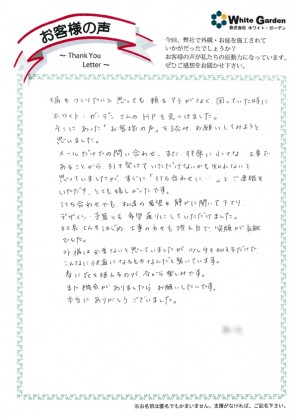 お客様の声
～ Thank You
Letter ～
White Garden
株式会社 ホワイト・ガーデン
今回、弊社で外構・お庭を施工されて
いかがだったでしょうか？
お客様の声が私たちの原動力になっています。
ぜひご感想をお聞かせ下さい。
塀をつくりたいと思っても 頼るアテがなく、困っていた時に
ホワイト・ガーデンさんのHPを見つけました。
そこにあった"お客様の声"を読み、お願いしてみようと
思いました。
メールだけでの問い合わせ、また、非常に小さな工事で
あることから 引き受けていただけないかも知れないと
思っていましたが、すぐに「打ち合わせに…」とご連絡を
いただき、とても嬉しかったです。
打ち合わせでも 私達の希望を静かに聞いて下さり、
デザイン・予算とも希望通りにしていただけました。
さんをはじめ、工事の方も 皆さん 笑顔が素敵
でした。
外構は必要ないと思っていましたが、少し手を加えるだけで
こんなに快適になるものなんだと驚いています。
春に花を植えるのが今から楽しみです。
また機会がありましたら お願いしたいです。
本当にありがとうございました。
※お名前は匿名でもかまいません。支障がなければ、ご記名下さい。